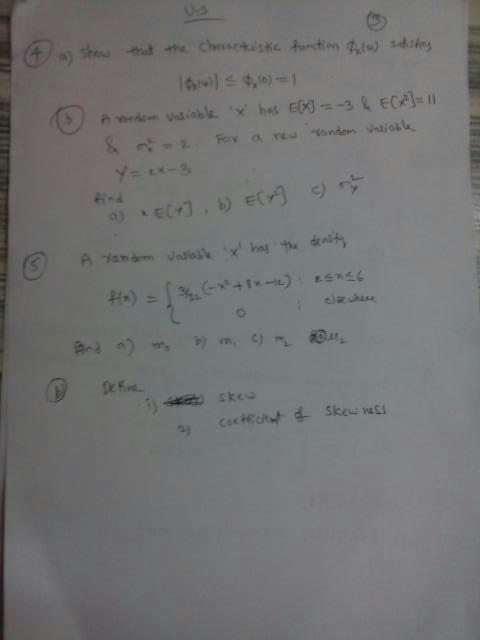 U-3
③
④ a) Show that the characteristic function ϕx(ω) satisfies
|ϕx(ω)| ≤ ϕx(0) = 1
ⓑ A random variable 'x' has E[X] = -3 & E[X²] = 11
& σx² = 2. For a new random variable
Y = 2x - 3
find
a) E[Y], b) E[Y²] c) σY²
⑤ A random variable 'x' has the density
f(x) = { 3/32 (-x² + 8x - 12) : 2 ≤ x ≤ 6
0 : elsewhere
Find a) m₀ b) m₁ c) m₂ μ₂
ⓑ Define
1) skew
2) coefficient of skewness